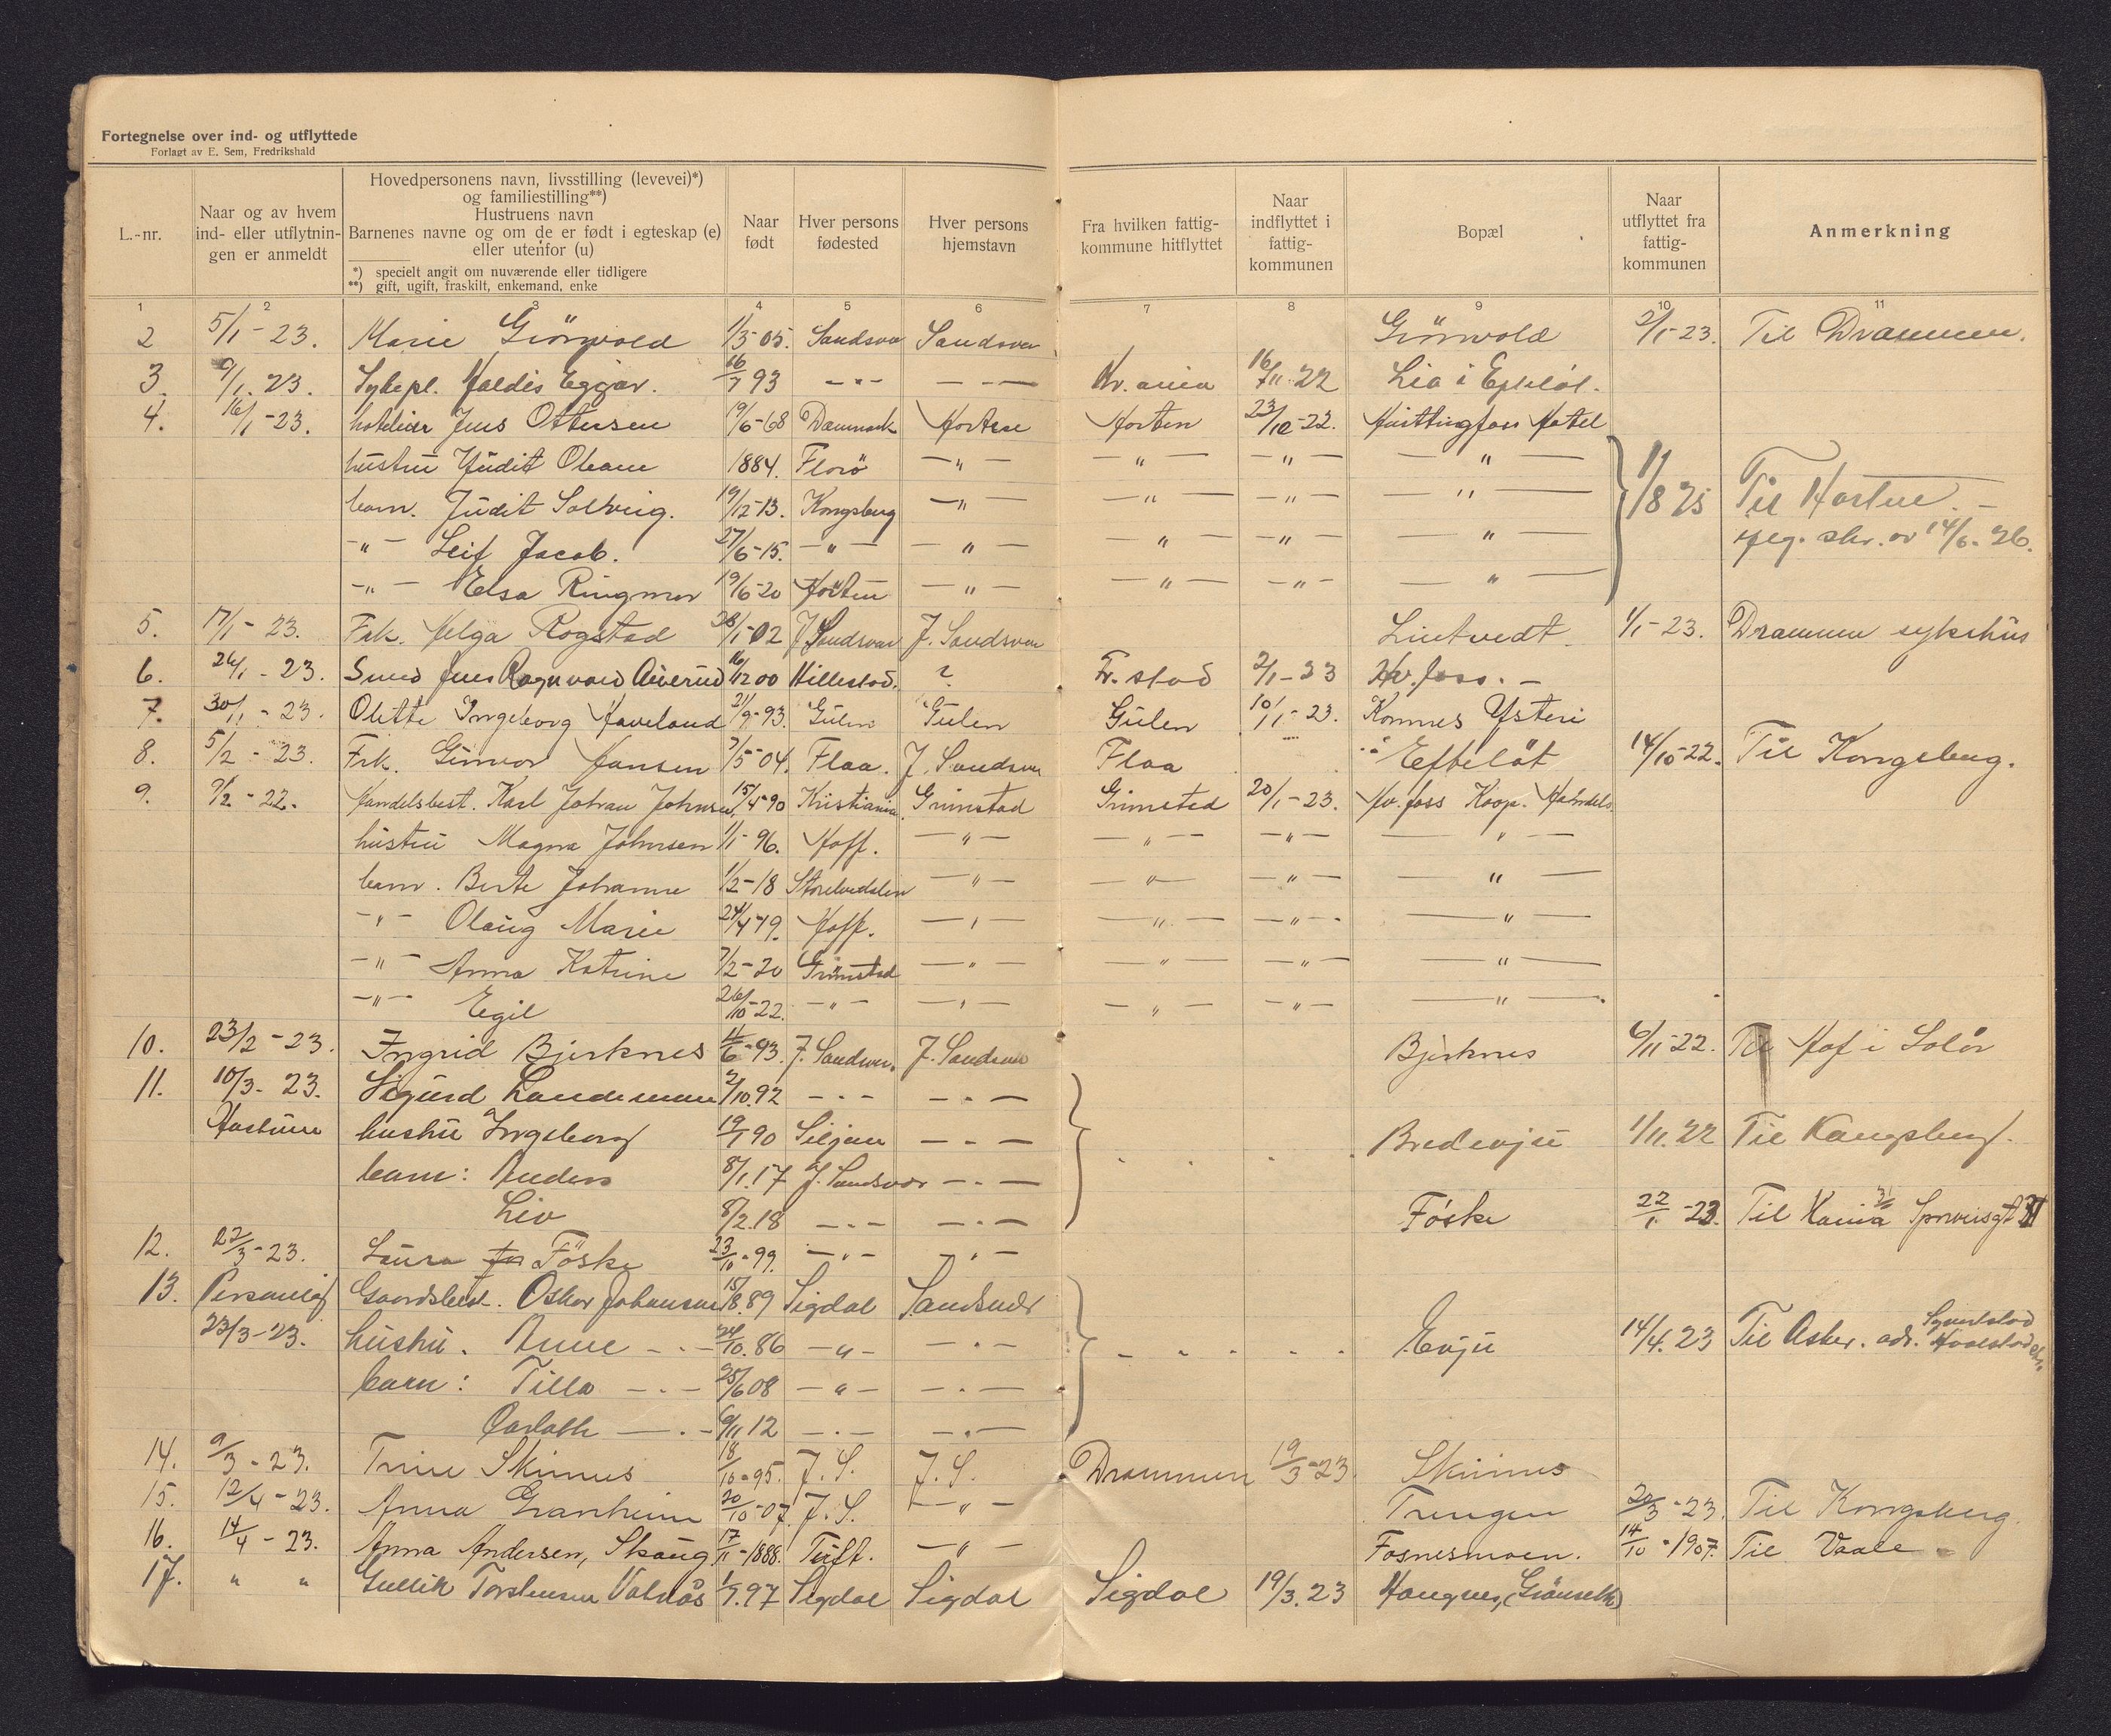 Fortegnelse over ind- og utflyttede
Forlagt av E. Sem, Fredrikshald
L.-nr.
Naar og av hvem
ind- eller utflytnin-
gen er anmeldt
Hovedpersonens navn, livsstilling (levevei)*)
og familiestilling**)
Hustruens navn
Barnenes navne og om de er født i egteskap (e)
eller utenfor (u)
*) specielt angit om nuværende eller tidligere
**) gift, ugift, fraskilt, enkemand, enke
Naar
født
Hver persons
fødested
Hver persons
hjemstavn
Fra hvilken fattig-
kommune hitflyttet
Naar
indflyttet i
fattig-
kommunen
Bopæl
Naar
utflyttet fra
fattig-
kommunen
Anmerkning
1 2 3 4 5 6 7 8 9 10 11
2 5/1-23. Marie Grönvold 1/3-05. Sandsvær Sandsvær Grönvold 2/1-23. Til Drammen.
3. 9/1.23. Sykepl. Haldis Eggar. 16/7 93 -"- -"- Kr.ania 16/11-22 Lia i Efteløt.
4. 16/1-23. hotelier Jens Ottersen 19/6-68 Danmark Horten Horten 23/10-22. Hvittingfoss Hotel
hustru Judit Oleane 1884. Florö -"- -"- -"- -"-
barn. Judit Solveig. 19/12-13. Kongsberg -"- -"- -"- -"- 1/8 25 Til Horten.-
-"- Leif Jacob. 27/6-15. -"- -"- -"- -"- -"- skr. av 14/6-26.
-"- Elsa Ringmor 19/6-20 Horten -"- -"- -"- -"-
5. 17/1-23. Frk. Helga Rogstad 28/1-02 J. Sandsvær J. Sandsvær Lintvedt 1/1-23. Drammen sykehus
6. 26/1-23. Smed Jens Ragnvald Aiverud 16/12 00 Hillestad. ? Fr.stad 2/1-23 Hv.foss.-
7. 30/1-23. Olette Ingeborg Haveland 21/9-93. Gulen Gulen Gulen 10/1-23. Komnes Ysteri
8. 5/2-23. Frk. Gunvor Jansen 7/5-04. Flaa. J. Sandsvær Flaa Efteløt 14/10-22. Til Kongsberg.
9. 9/2-22. Handelsbest. Karl Johan Johnsen 15/4-90 Kristiania Grimstad Grimstad 20/1-23. Hv.foss Koop. Handels.
hustru Magna Johnsen 1/1-96. Hoff. -"- -"- -"- -"-
barn. Berte Johanne 1/2-18 Storelvedalen -"- -"- -"- -"-
-"- Olaug Marie 24/4-19. Hoff. -"- -"- -"- -"-
-"- Anna Katrine 7/2-20 Grimstad -"- -"- -"- -"-
-"- Egil 26/10-22. -"- -"- -"- -"- -"-
10. 23/2-23. Ingrid Bjerknes 11/6-93. J. Sandsvær J. Sandsvær Bjerknes 6/11-22. Til Hof i Solør
11. 10/3-23. Sigurd Landsmann 2/10.92 -"- -"-
hustru Ingeborg 19/1 90 Siljan -"- Bredevju 1/11.22 Til Kongsberg.
barn: Anders 8/1.17 J. Sandsvær -"-
Liv 8/2.18 -"- -"- Føske 22/1-23. Til Kania
12. 22/3-23. Laura Føske 23/10-99. -"- -"-
13. Personlig Gaardsbest. Oskar Johansen 15/8.89 Sigdal Sandsvær
23/3-23. hustru. Anne -"- 24/10.86 -"- -"- Evju 14/4.23 Til Asker. adr.
barn: Tilla -"- 25/6 08 -"- -"-
-"- 6/11 12 -"- -"-
14. 9/3-23. Trine Skinnes 18/10-95. J. S. J. S. Drammen 19/3-23 Skinnes
15. 12/4-23. Anna Granheim 20/10-07. J. S. -"- Trengen 20/3-23. Til Kongsberg.
16. 14/4-23. Anna Andersen, Skaug 17/11-1888. Tuft. -"- Fosnesmoen. 14/10-1907. Til Vaale
17. " " Gullik Torstensen Valnås 1/7.97 Sigdal Sigdal Sigdal 19/3.23 Haugnes,